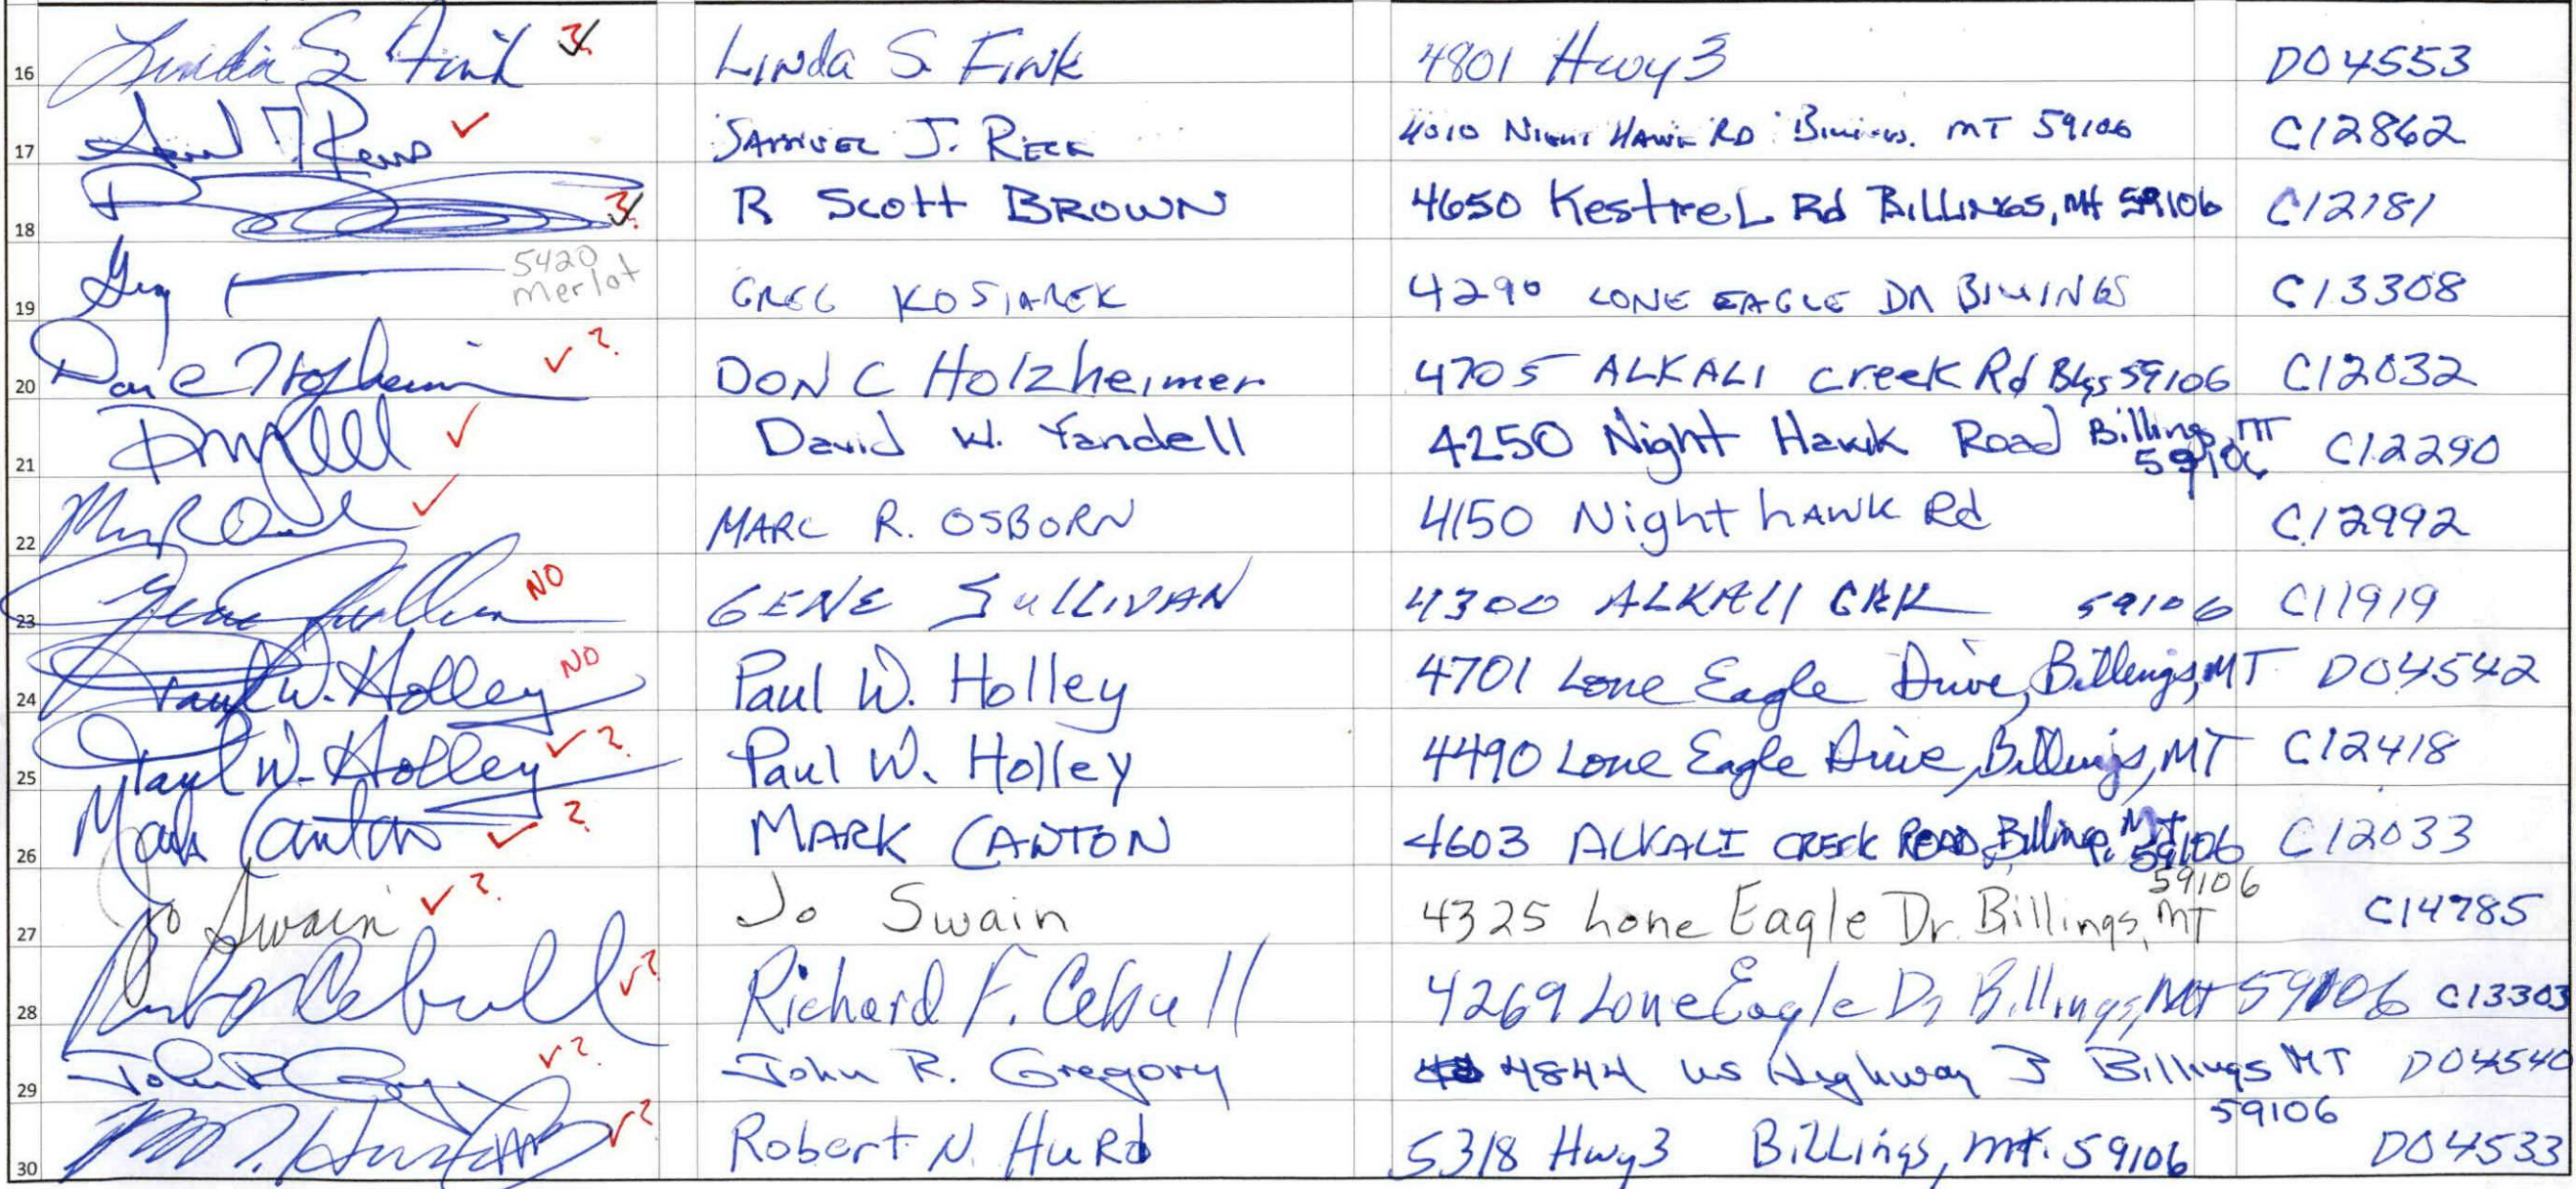 16 Linda S Fink ? Linda S. Fink 4801 Hwy 3 D04553
17 SAMUEL J. RECK 4010 NIGHT HAWK RD Billings. MT 59106 C12862
18 ? R Scott BROWN 4650 KestreL Rd BILLINGS, Mt 59106 C12181
5420
merlot
19 Greg GREG KOSIAREK 4290 LONE EAGLE DR BILLINGS C13308
20 Don C Holzheimer ✓ ? DON C Holzheimer 4705 ALKALI creek Rd Blgs 59106 C12032
21 ✓ David W. Yandell 4250 Night Hawk Road Billings, MT 59106 C12290
22 ✓ MARC R. OSBORN 4150 Night hAWK Rd C12992
23 Gene Sullivan NO GENE SuLLIVAN 4300 ALKALI CRK 59106 C11919
24 Paul W. Holley NO Paul W. Holley 4701 Lone Eagle Drive, Billings, MT D04542
25 Paul W. Holley ✓ ? Paul W. Holley 4490 Lone Eagle Drive, Billings, MT C12418
26 Mark Canton ✓ ? MARK CANTON 4603 ALKALI CREEK ROAD, Billings, MT 59106 C12033
27 Jo Swain ✓ ? Jo Swain 4325 Lone Eagle Dr. Billings, MT 59106 C14785
28 Cebull ✓ ? Richard F. Cebull 4269 Lone Eagle Dr Billings, Mt 59106 C13303
29 John R ✓ ? John R. Gregory 4844 US Highway 3 Billings MT 59106 D04540
30 ✓ ? Robert N. HuRd 5318 Hwy 3 BiLLings, mt. 59106 D04533